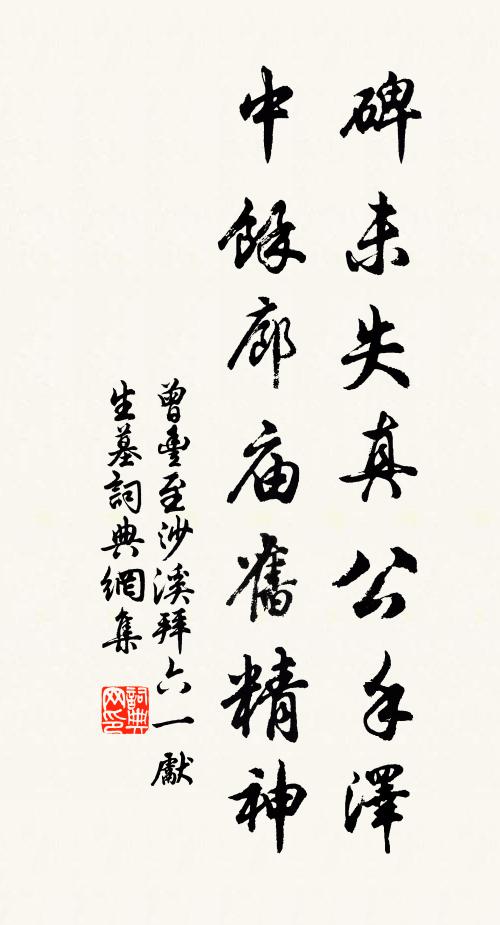 碑未失真公手澤
中餘廊庙舊精神
曾豐至沙溪拜六一獻
生墓詞典網集
詞典网印